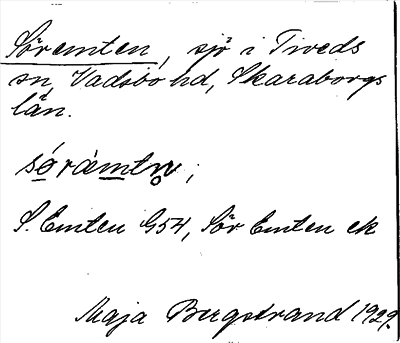 Söremten, sjö i Tiveds
sn, Vadsbo hd, Skaraborgs
län.
sörämtn;
S. Emten G54, Sör Emten ek
Maja Bergstrand 1929.